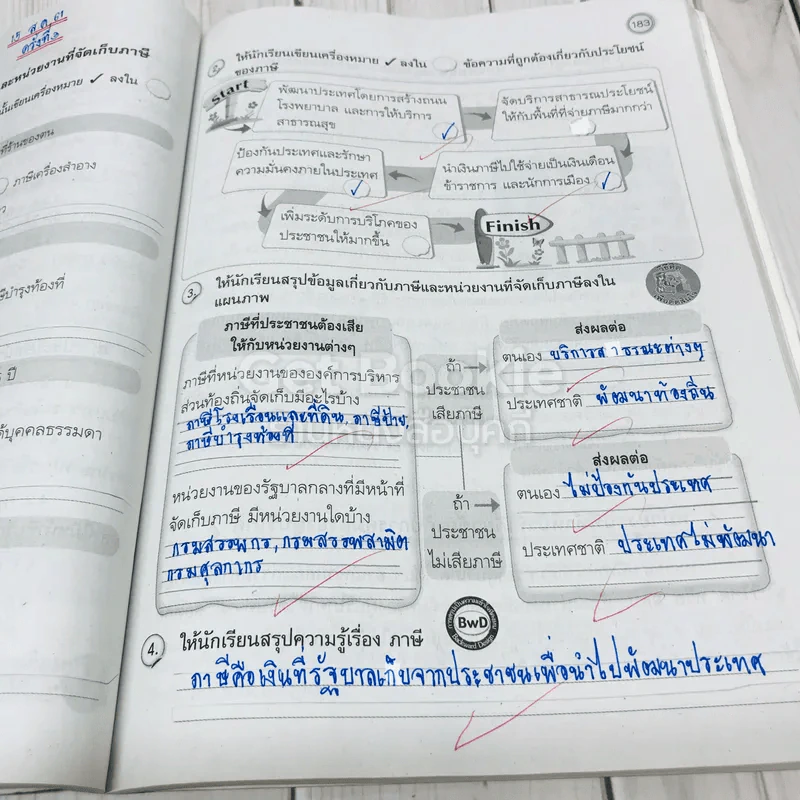 15 ส.ค. 61
ครั้งที่ ๑
ละหน่วยงานที่จัดเก็บภาษี
นั้นเขียนเครื่องหมาย ✓ ลงใน
ที่ร้านของตน
ภาษีเครื่องสำอาง
ษีบำรุงท้องที่
ปี
ด้บุคคลธรรมดา
183
ให้นักเรียนเขียนเครื่องหมาย ✓ ลงใน ข้อความที่ถูกต้องเกี่ยวกับประโยชน์
ของภาษี
Start
พัฒนาประเทศโดยการสร้างถนน
โรงพยาบาล และการให้บริการ
สาธารณสุข ✓
จัดบริการสาธารณประโยชน์
ให้กับพื้นที่ที่จ่ายภาษีมากกว่า
ป้องกันประเทศและรักษา
ความมั่นคงภายในประเทศ ✓
นำเงินภาษีไปใช้จ่ายเป็นเงินเดือน
ข้าราชการ และนักการเมือง ✓
เพิ่มระดับการบริโภคของ
ประชาชนให้มากขึ้น
Finish
3. ให้นักเรียนสรุปข้อมูลเกี่ยวกับภาษีและหน่วยงานที่จัดเก็บภาษีลงใน
แผนภาพ
ภาษีที่ประชาชนต้องเสีย
ให้กับหน่วยงานต่างๆ
ภาษีที่หน่วยงานขององค์การบริหาร
ส่วนท้องถิ่นจัดเก็บมีอะไรบ้าง
ภาษีโรงเรือนและที่ดิน, ภาษีป้าย,
ภาษีบำรุงท้องที่
หน่วยงานของรัฐบาลกลางที่มีหน้าที่
จัดเก็บภาษี มีหน่วยงานใดบ้าง
กรมสรรพกร, กรมสรรพสามิต
กรมศุลกากร
ถ้า
ประชาชน
เสียภาษี
ส่งผลต่อ
ตนเอง บริการสาธารณะต่างๆ
ประเทศชาติ พัฒนาท้องถิ่น
ถ้า
ประชาชน
ไม่เสียภาษี
ส่งผลต่อ
ตนเอง ไม่ป้องกันประเทศ
ประเทศชาติ ประเทศไม่พัฒนา
BwD
Backward Design
4. ให้นักเรียนสรุปความรู้เรื่อง ภาษี
ภาษีคือเงินที่รัฐบาลเก็บจากประชาชนเพื่อนำไปพัฒนาประเทศ